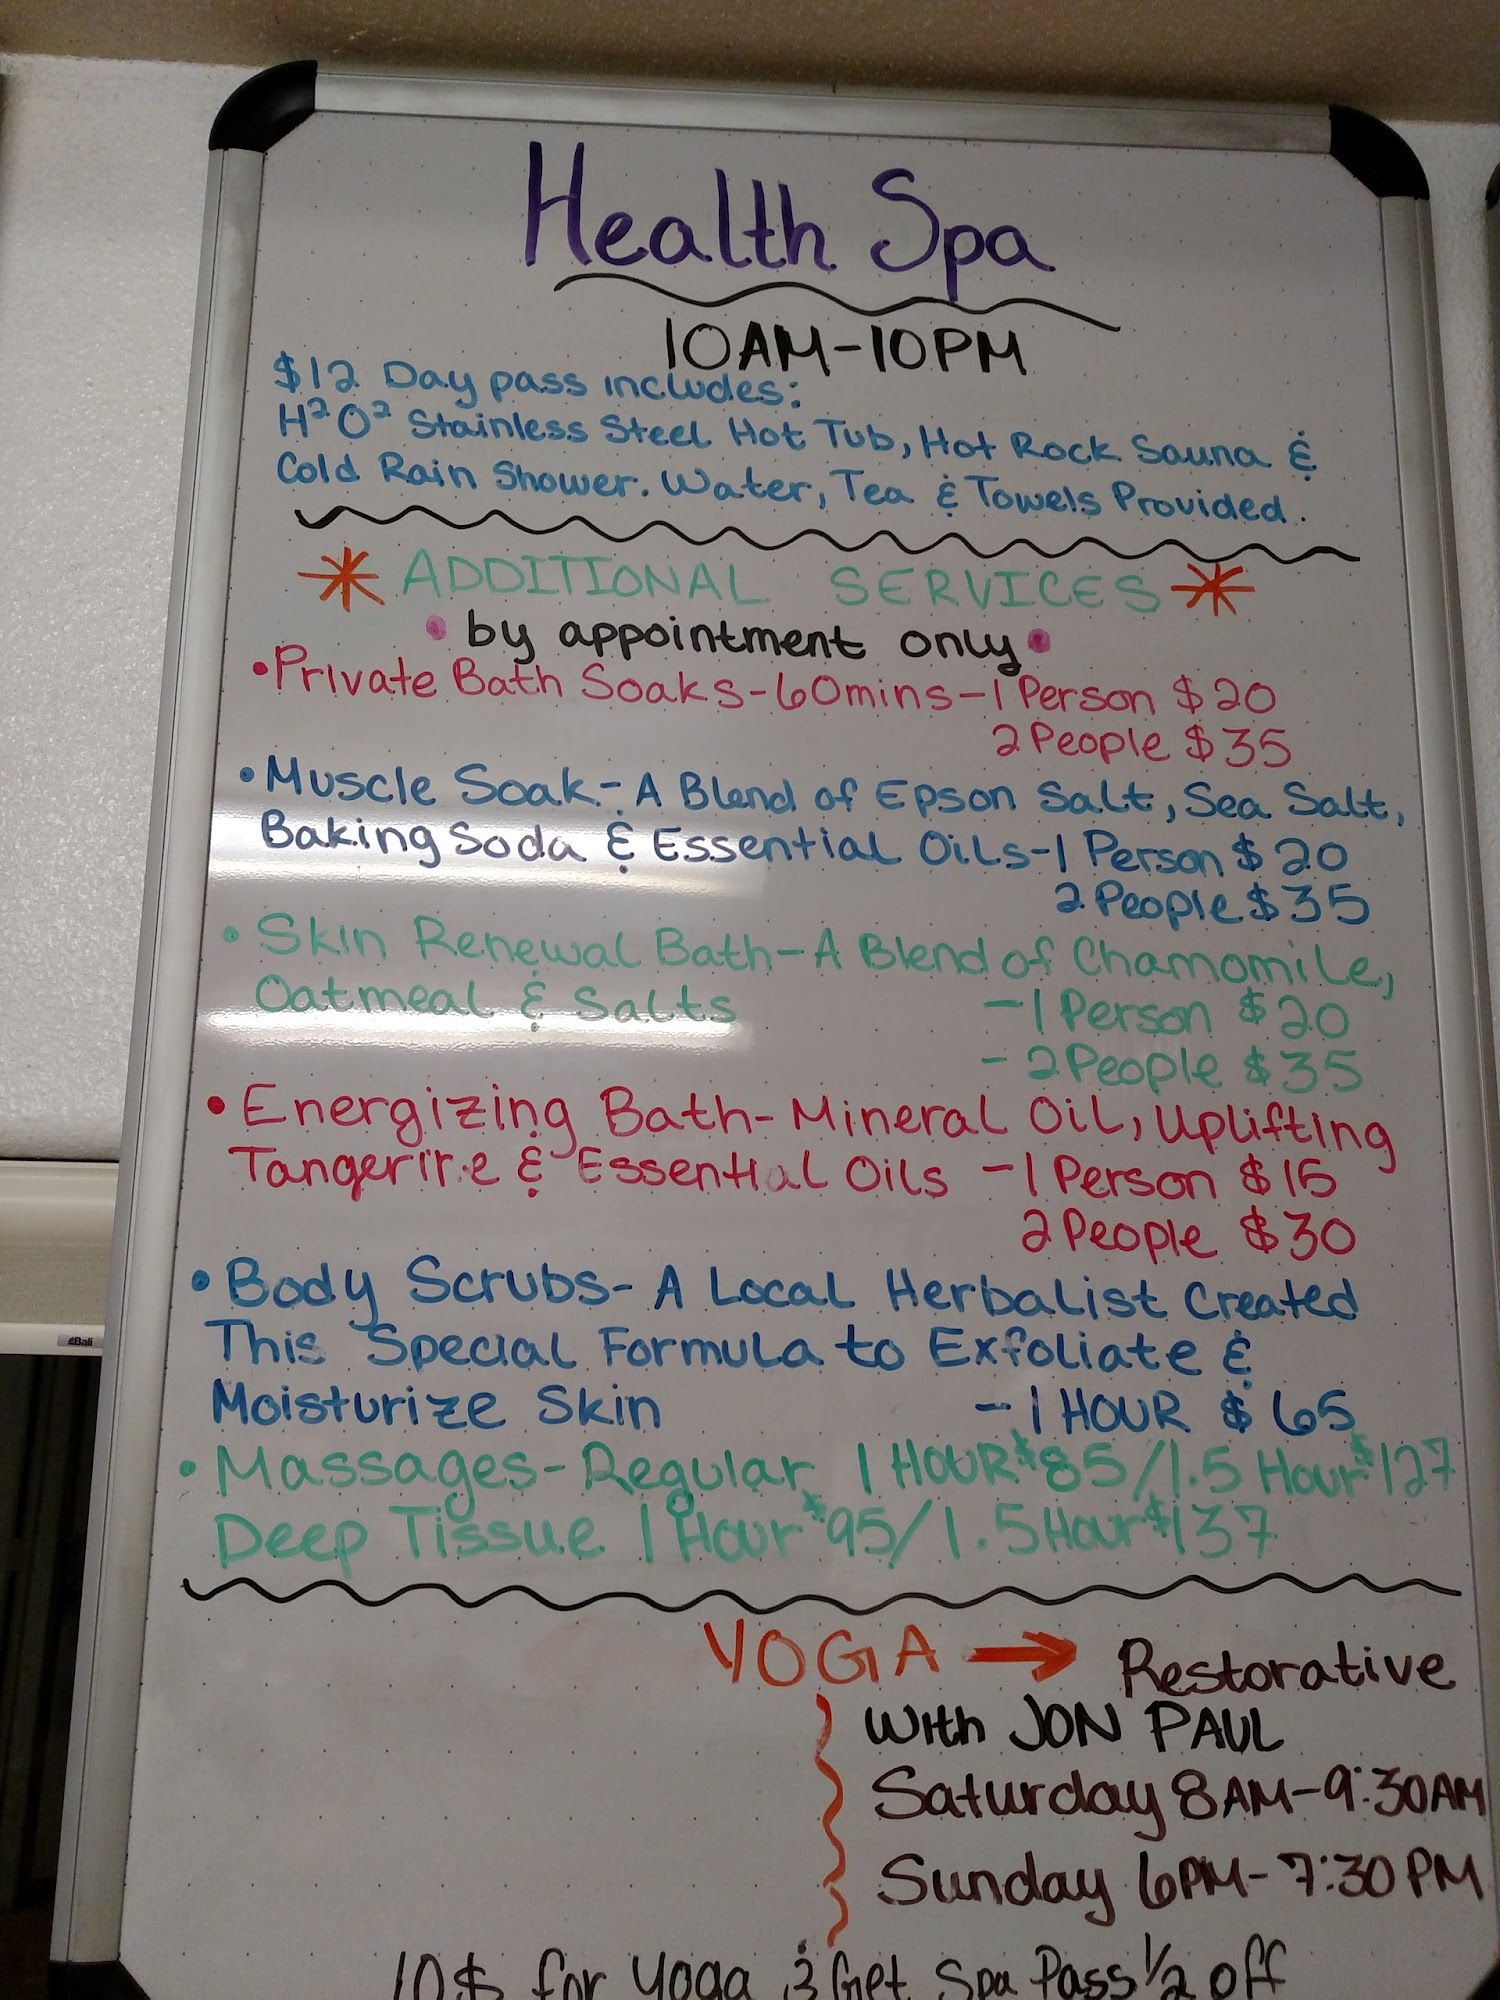 Health Spa
10AM-10PM
$12 Day pass includes:
H²O² Stainless Steel Hot Tub, Hot Rock Sauna &
Cold Rain Shower. Water, Tea & Towels Provided.
ADDITIONAL SERVICES
• by appointment only •
• Private Bath Soaks-60mins-1 Person $20
2 People $35
• Muscle Soak-A Blend of Epson Salt, Sea Salt,
Baking Soda & Essential Oils-1 Person $20
2 People $35
• Skin Renewal Bath-A Blend of Chamomile,
Oatmeal & Salts -1 Person $20
- 2 People $35
• Energizing Bath-Mineral Oil, Uplifting
Tangerine & Essential Oils -1 Person $15
2 People $30
• Body Scrubs-A Local Herbalist Created
This Special Formula to Exfoliate &
Moisturize Skin -1 HOUR $65
• Massages-Regular 1 HOUR $85/1.5 Hour $127
Deep Tissue 1 Hour $95/1.5 Hour $137
YOGA → Restorative
With JON PAUL
Saturday 8AM-9:30AM
Sunday 6PM-7:30PM
10$ for Yoga & Get Spa Pass 1/2 off
Bali